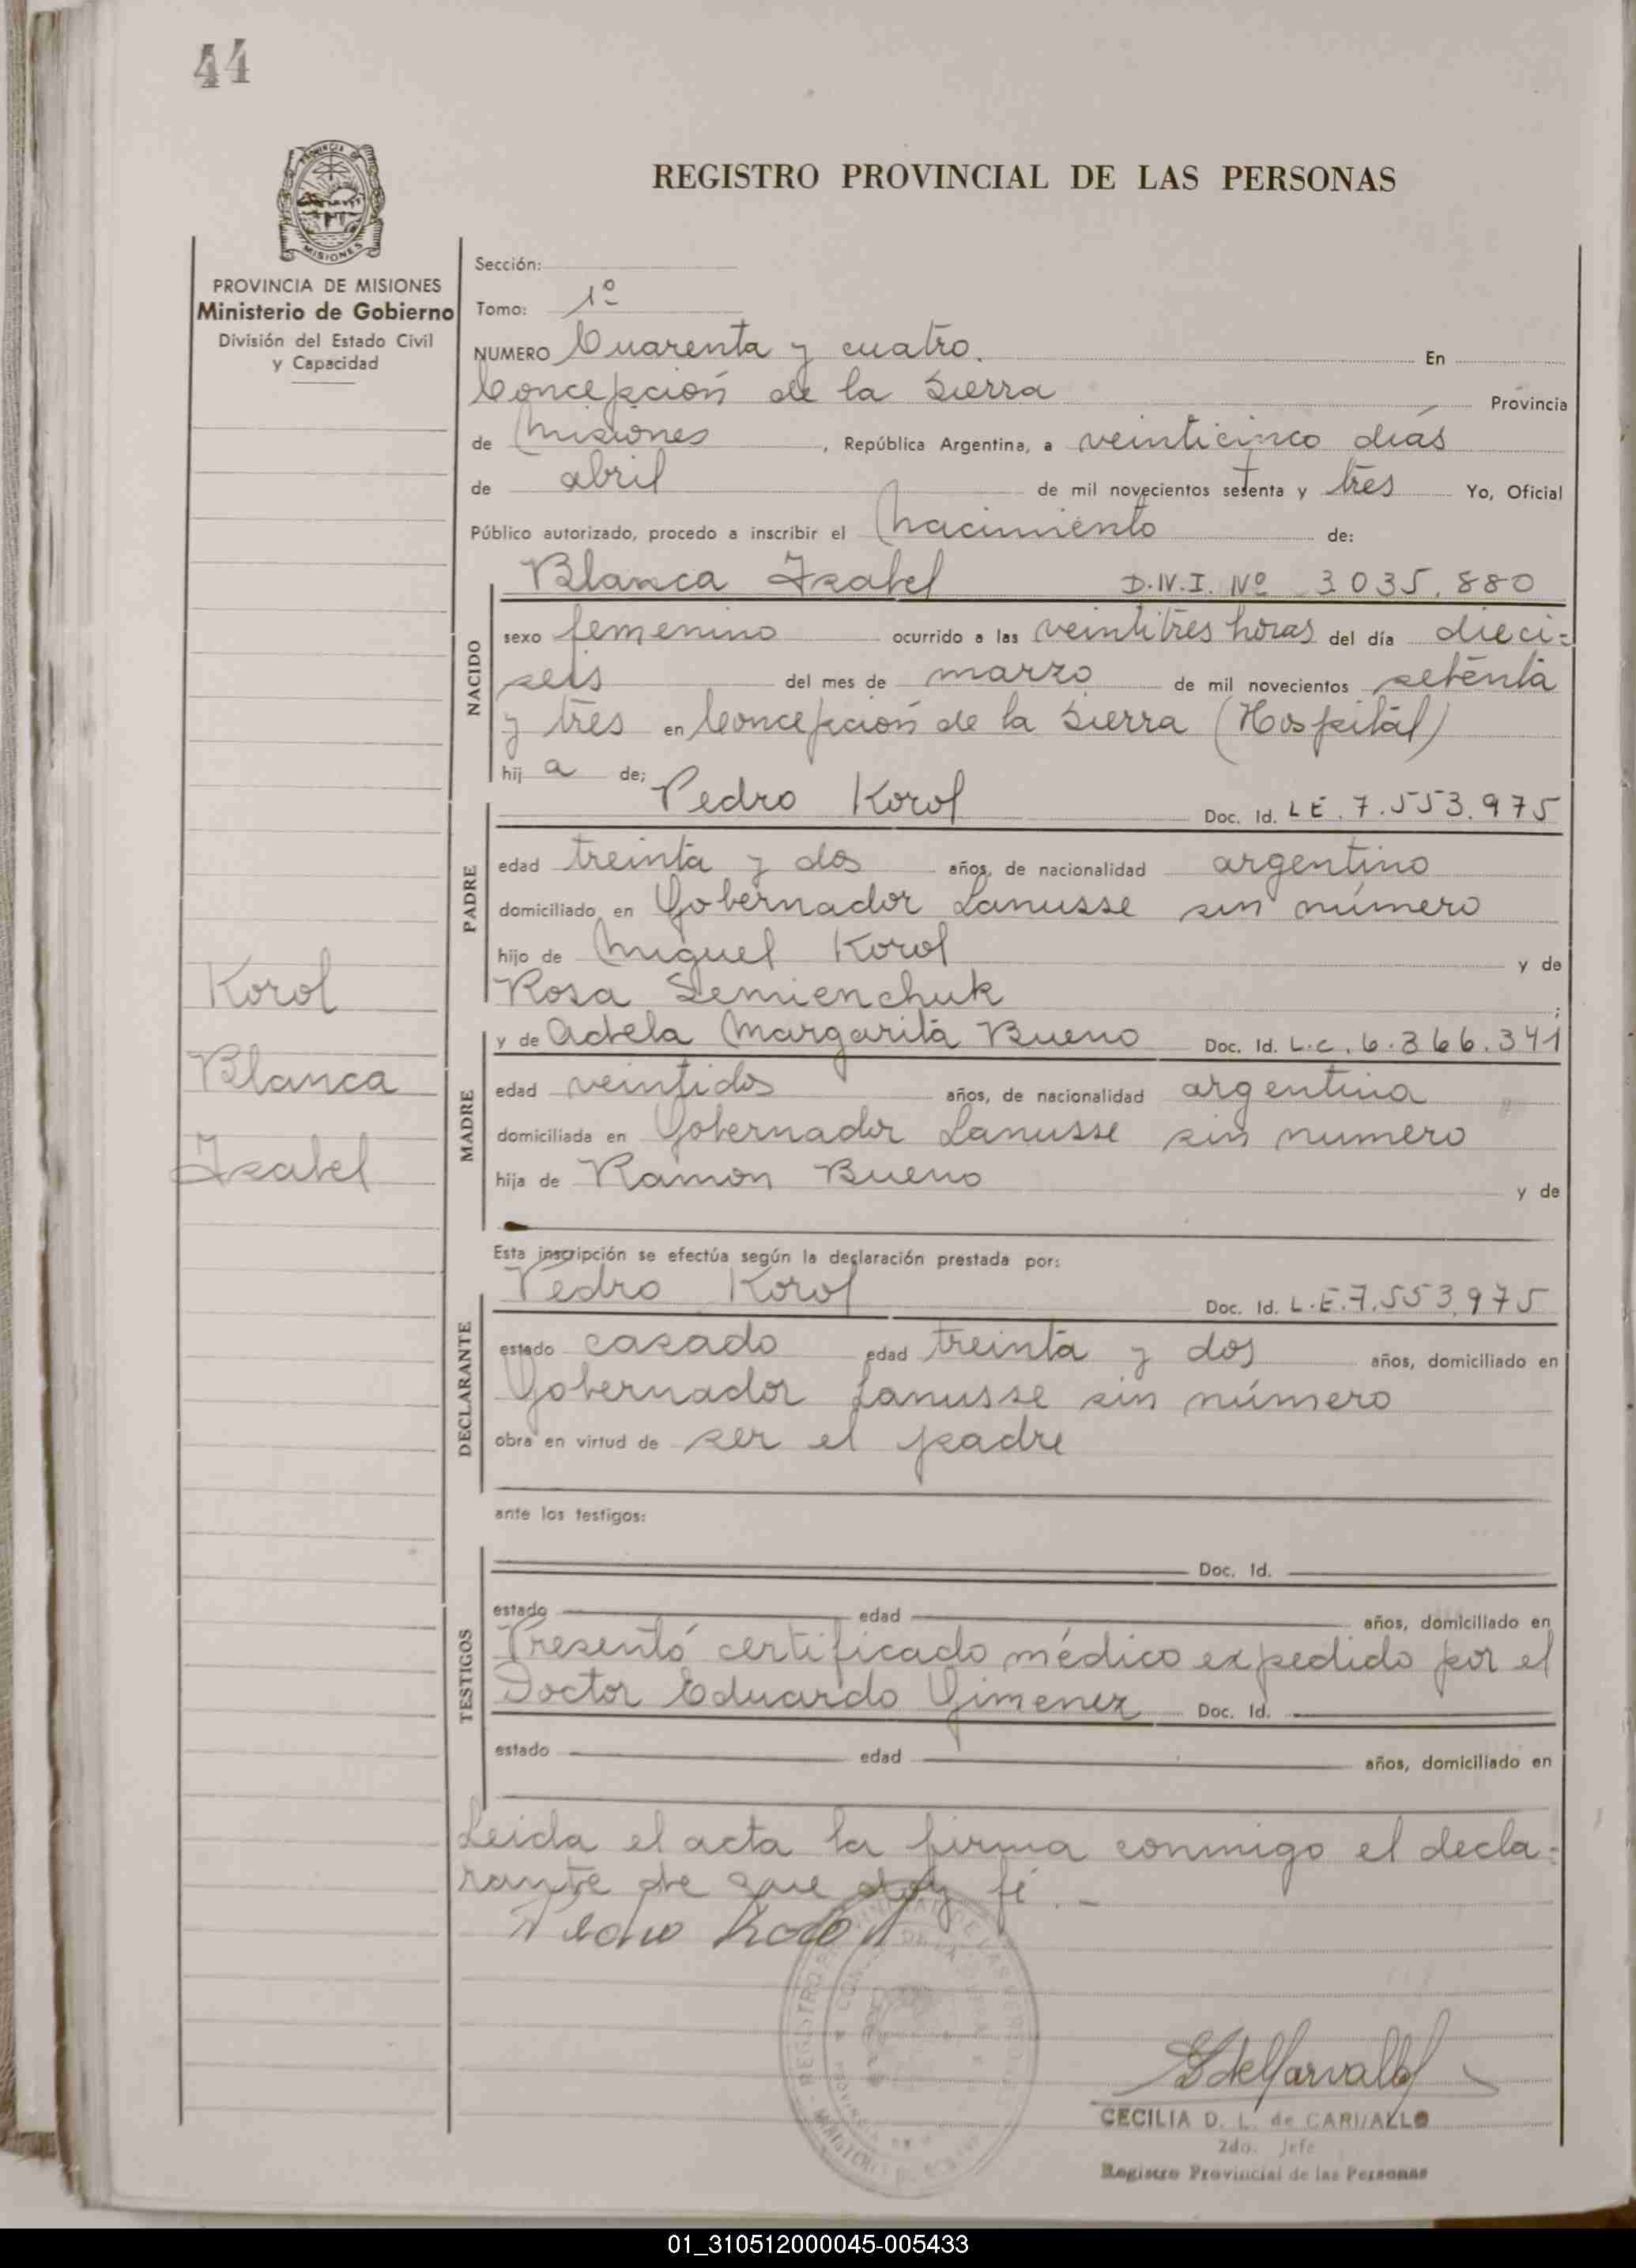 44
REGISTRO PROVINCIAL DE LAS PERSONAS
PROVINCIA DE MISIONES
Ministerio de Gobierno
División del Estado Civil
y Capacidad
Sección:
Tomo: 1º
NUMERO Cuarenta y cuatro. En
Concepción de la Sierra Provincia
de Misiones, República Argentina, a veinticinco días
de abril de mil novecientos setenta y tres Yo, Oficial
Público autorizado, procedo a inscribir el Nacimiento de:
Blanca Izabel D.N.I. Nº 3035.880
NACIDO
sexo femenino ocurrido a las veintitres horas del día dieci=
seis del mes de marzo de mil novecientos setenta
y tres en Concepción de la Sierra (Hospital)
hij a de: Pedro Korol Doc. Id. LE. 7.553.975
PADRE
edad treinta y dos años, de nacionalidad argentino
domiciliado en Gobernador Lanusse sin número
hijo de Miguel Korol y de
Rosa Semienchuk ;
y de Adela Margarita Bueno Doc. Id. L.C. 6.366.341
MADRE
edad veintidos años, de nacionalidad argentina
domiciliada en Gobernador Lanusse sin numero
hija de Ramon Bueno y de
Korol
Blanca
Izabel
Esta inscripción se efectúa según la declaración prestada por:
Pedro Korol Doc. Id. L.E. 7.553.975
DECLARANTE
estado casado edad treinta y dos años, domiciliado en
Gobernador Lanusse sin número
obra en virtud de ser el padre
ante los testigos:
Doc. Id.
TESTIGOS
estado edad años, domiciliado en
Presentó certificado médico expedido por el
Doctor Eduardo Gimenez Doc. Id.
estado edad años, domiciliado en
Leida el acta la firma conmigo el decla=
rante de que doy fé.-
Pedro Korol
CECILIA D. L. de CARVALLO
2do. Jefe
Registro Provincial de las Personas
01_310512000045-005433